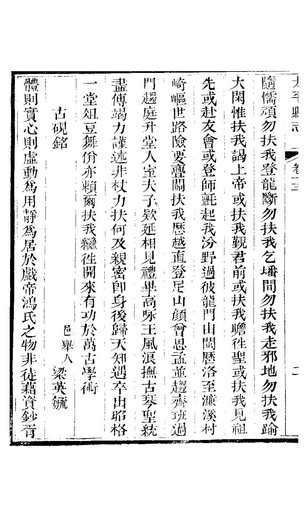 隨儒頑勿扶我登龍斷勿扶我乞墦間勿扶我走邪地勿扶我踰
大閑惟扶我謁上帝或扶我覲君前或扶我瞻往聖或扶我見祖
先或赴友會或登師氈起我汾野過彼龍門山閩歷洛至濂溪村
崎嶇世路險要關扶我歷越直登尼山顏曾思孟並趨齊班過
門趨庭升堂入室夫子欵延相見禮畢高咏王風浪撫古琴聖統
盡傳竭力謹述非杖力扶何及親密即身後歸天知遇卒出昭格
一堂俎豆舞佾亦賴爾扶我繼往開來有功於萬古學術
古硯銘
邑舉人 梁英毓
體則實心則虛動為用靜為居於戲帝鴻氏之物非徒藉資鈔胥